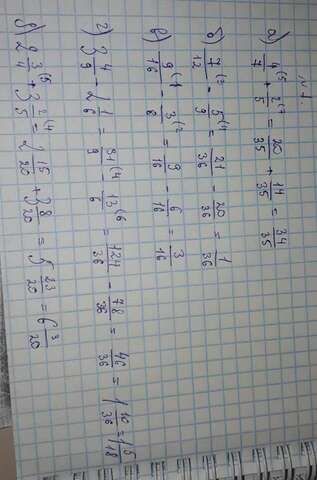 №1.
а) 4/7 (5 + 2/5 (7 = 20/35 + 14/35 = 34/35
б) 7/12 (3 - 5/9 (4 = 21/36 - 20/36 = 1/36
в) 9/16 (1 - 3/8 (2 = 9/16 - 6/16 = 3/16
г) 3 4/9 - 2 1/6 = 31/9 (4 - 13/6 (6 = 124/36 - 78/36 = 46/36 = 1 10/36 = 1 5/18
д) 2 3/4 (5 + 3 2/5 (4 = 2 15/20 + 3 8/20 = 5 23/20 = 6 3/20